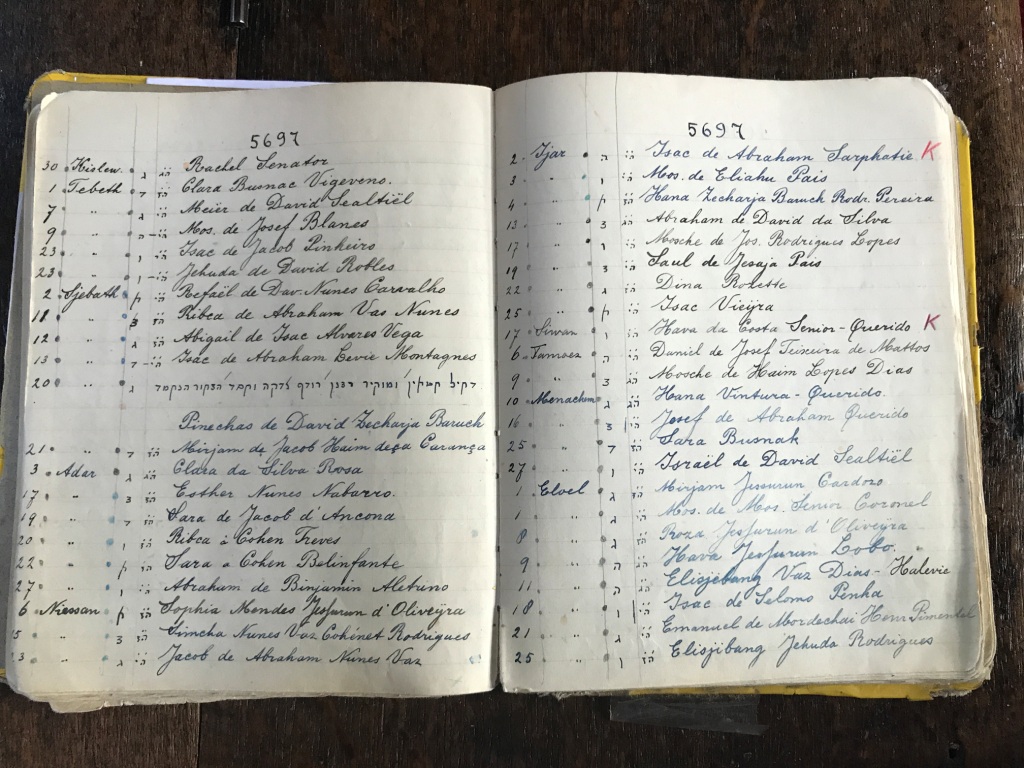 5697
30 Kislew. ג הי Rachel Senator
1 Tebeth ד הי Clara Busnac Vigeveno.
7 " ג Meïer de David Sealtiël
9 " ה Mos. de Josef Blanes
23 " ה Isac de Jacob Pinheiro
23 " ה Jehuda de David Robles
2 Sjebath Refaël de Dav. Nunes Carvalho
11 " Ribca de Abraham Vas Nunes
12 " ג Abigail de Isac Alvares Vega
13 " ד Isac de Abraham Levie Montagnes
20 " ג
Pinechas de David Zecharja Baruch
21 " ד Mirjam de Jacob Haim deça Carança
3 Adar ג Clara da Silva Rosa
17 " Esther Nunes Nabarro.
19 " ד Sara de Jacob d'Ancona
20 " ו Ribca à Cohen Freves
22 " Sara a Cohen Belinfante
27 " ו Abraham de Binjamin Aletrino
6 Niessan Sophia Mendes Jessurun d'Oliveijra
15 " Simcha Nunes Vaz Cohénet Rodrigues
" ג Jacob de Abraham Nunes Vaz
5697
2 Ijar ה Isac de Abraham Sarphatie K
3 " ו Mos. de Eliahu Pais
4 " Hana Zecharja Baruch Rodr. Pereira
13 " Abraham de David da Silva
17 " ו Mosche de Jos. Rodrigues Lopes
19 " Saul de Jesaja Pais
22 " ג Dina Rosette
25 " Isac Vieijra
17 Siwan ו Hava da Costa Senior-Querido K
6 Tamoez ה Daniel de Josef Teixeira de Mattos
9 " Mosche de Haim Lopes Dias
10 Menachem ג Hana Vintura-Querido.
16 " Josef de Abraham Querido
25 " ד Sara Busnak
27 " ו Israël de David Sealtiël
1 Eloel ג Mirjam Jessurun Cardozo
1 " ג Mos. de Mos. Senior Coronel
8 " ג Roza Jessurun d'Oliveijra
9 " ה Hava Jessurun Lobo.
11 " Elisjebang Vaz Dias-Halevie
18 " Isac de Selomo Penha
21 " ג Emanuel de Mordechai Henr. Pimentel
25 " ו Elisjibang Jehuda Rodrigues